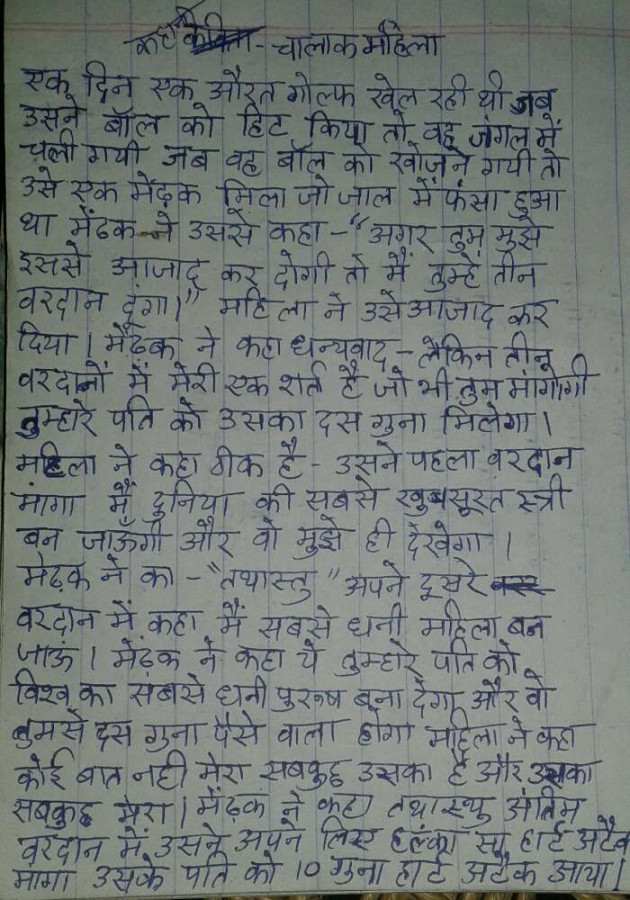 कहानी - चालाक महिला
एक दिन एक औरत गोल्फ खेल रही थी जब
उसने बॉल को हिट किया तो वह जंगल में
चली गयी जब वह बॉल को खोजने गयी तो
उसे एक मेंढ़क मिला जो जाल में फंसा हुआ
था मेंढक ने उससे कहा - "अगर तुम मुझे
इससे आजाद कर दोगी तो मैं तुम्हें तीन
वरदान दूंगा।" महिला ने उसे आजाद कर
दिया। मेंढ़क ने कहा धन्यवाद - लेकिन तीन
वरदानों में मेरी एक शर्त है जो भी तुम मांगोगी
तुम्हारे पति को उसका दस गुना मिलेगा।
महिला ने कहा ठीक है - उसने पहला वरदान
मांगा मैं दुनिया की सबसे खुबसूरत स्त्री
बन जाऊँगी और वो मुझे ही देखेगा।
मेढ़क ने का - "तथास्तु" अपने दूसरे
वरदान में कहा मैं सबसे धनी महिला बन
जाऊं। मेंढ़क ने कहा ये तुम्हारे पति को
विश्व का सबसे धनी पुरुष बना देगा और वो
तुमसे दस गुना पैसे वाला होगा महिला ने कहा
कोई बात नही मेरा सबकुछ उसका है और उसका
सबकुछ मेरा। मेंढ़क ने कहा तथास्थु अंतिम
वरदान में उसने अपने लिए हल्का सा हार्ट अटैक
मांगा उसके पति को 10 गुना हार्ट अटैक आया।